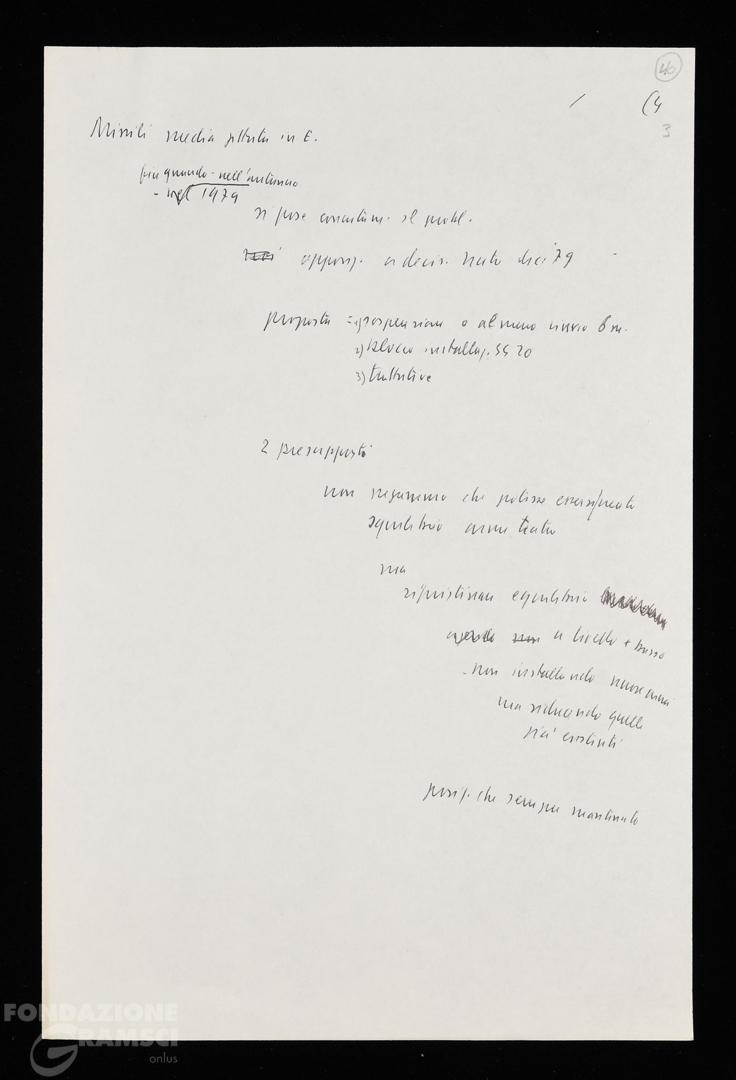 40
(4
3
Missili media gittata in E.
fin quando - nell'autunno
- nel 1979
si pose concretam. il probl.
opposiz. a decis. Nato dic. 79
proposta = 1) sospensione o almeno rinvio 6 m.
2) blocco installaz. SS 20
3) trattative
2 presupposti
non negammo che potesse essersi
equilibrio armi teatro
ma
ripristinare equilibrio
a livello + basso
- non installando nuove armi
ma riducendo quelle
già esistenti
posiz. che sempre mantenuto
FONDAZIONE
GRAMSCI
onlus